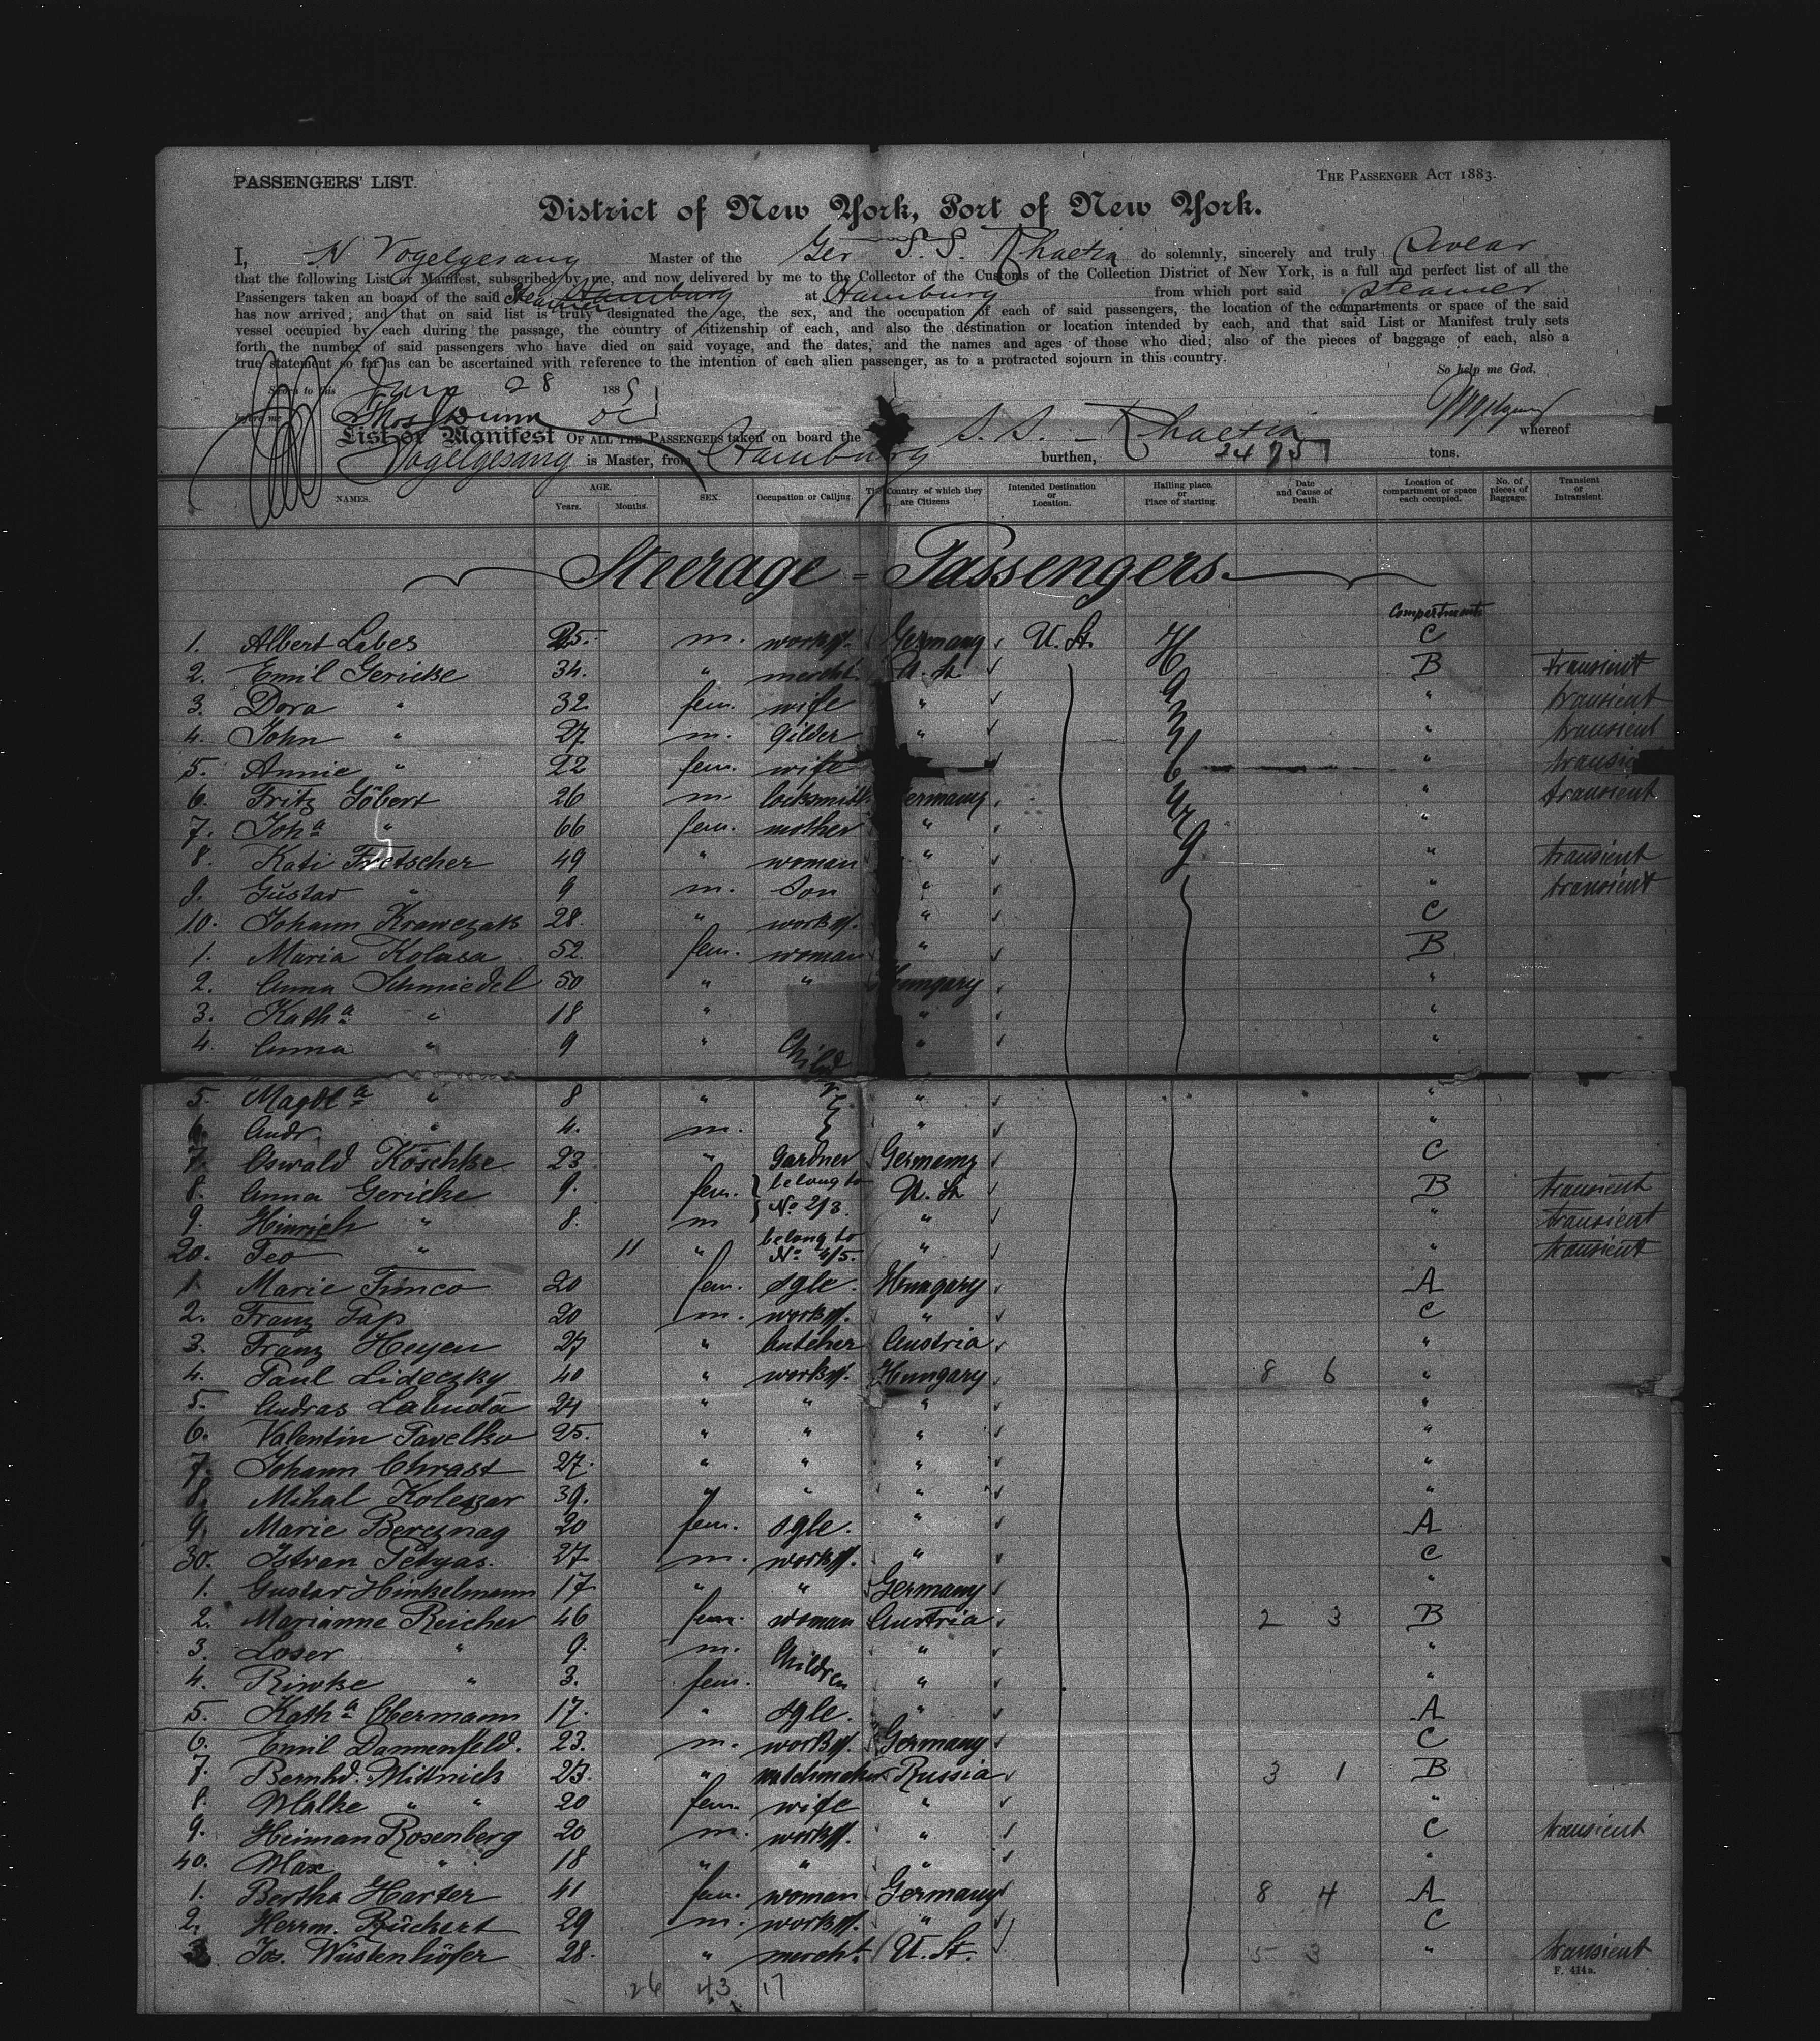 PASSENGERS' LIST.
THE PASSENGER ACT 1883.
District of New York, Port of New York.
I, N Vogelgesang Master of the Ger S. S. Rhaetia do solemnly, sincerely and truly Swear
that the following List or Manifest, subscribed by me, and now delivered by me to the Collector of the Customs of the Collection District of New York, is a full and perfect list of all the
Passengers taken an board of the said Steamer Hamburg at Hamburg from which port said steamer
has now arrived; and that on said list is truly designated the age, the sex, and the occupation of each of said passengers, the location of the compartments or space of the said
vessel occupied by each during the passage, the country of citizenship of each, and also the destination or location intended by each, and that said List or Manifest truly sets
forth the number of said passengers who have died on said voyage, and the dates, and the names and ages of those who died; also of the pieces of baggage of each, also a
true statement so far as can be ascertained with reference to the intention of each alien passenger, as to a protracted sojourn in this country.
So help me God,
Sworn to this 28 188
before me
List or Manifest OF ALL THE PASSENGERS taken on board the S. S. - Rhaetia whereof
Vogelgesang is Master, from Hamburg burthen, tons.
NAMES. AGE. Years. Months. SEX. Occupation or Calling. The Country of which they are Citizens Intended Destination or Location. Hailing place or Place of starting. Date and Cause of Death. Location of compartment or space each occupied. No. of pieces of Baggage. Transient or Intransient.
Steerage = Passengers.
Compartments
1. Albert Labes 25. m. Germany U. St. Hamburg C
2. Emil Gericke 34. " mercht. U. St. B transient
3. Dora " 32 fem. wife " " transient
4. John " 27 m. gilder " " transient
5. Annie " 22 fem. wife "
6. Fritz Göbert 26 m. locksmith Germany " transient
7. Joh<sup>a</sup> " 66 fem. mother " "
8. Kati Fretscher 49 " woman " " transient
9. Gustav " 9 m. Son " " transient
10. Johann Krawczak 28. " " C
1. Maria Kolasa 52. fem. woman " B
2. Anna Schmiedel 50 " " Hungary "
3. Kath<sup>a</sup> " 18 " " "
4. Anna " 9 " "
5. Magdl<sup>a</sup> " 8 " " "
6. Andr. " 4. m. " "
7. Oswald Köschke 23 " gardner Germany C
8. Anna Gericke 9. fem. belong to No 2/3. U. St. B transient
9. Hinrich " 8. m " " transient
20. Feo " 11 " belong to No 4/5. " " transient
1. Marie Timco 20 fem. sgle. Hungary A
2. Franz Pap 20 m. " C
3. Franz Heyen 27 " butcher Austria "
4. Paul Lideczky 40 " Hungary 8 6 "
5. Andras Labuda 24 " " " "
6. Valentin Pavelko 25. " " " "
7. Johann Chrast 27. " " " "
8. Mihal Koleszar 39. " " " "
9. Marie Bereznag 20 fem. sgle. " A
30. Istvan Petyas. 27 m. " C
1. Gustav Hinkelmann 17 " " Germany "
2. Marianne Reicher 46 fem. woman Austria 2 3 B
3. Loser " 9. m. Children " "
4. Riwke " 3. fem. " "
5. Kath<sup>a</sup> Obermann 17. " sgle. " A
6. Emil Dannenfeld. 23. m. Germany C
7. Bernhd. Mittnick 23. " watchmaker Russia 3 1 B
8. Malke " " 20 fem. wife " "
9. Heiman Rosenberg 20 m. " C transient
40. Max " 18 " " " "
1. Bertha Harter 41 fem. woman Germany 8 4 A
2. Herrm. Rückert 29 m. " C
3. Jos. Wüstenhöfer 28. " mercht. U. St. 5 3 " transient
F. 414a.
26 43 17